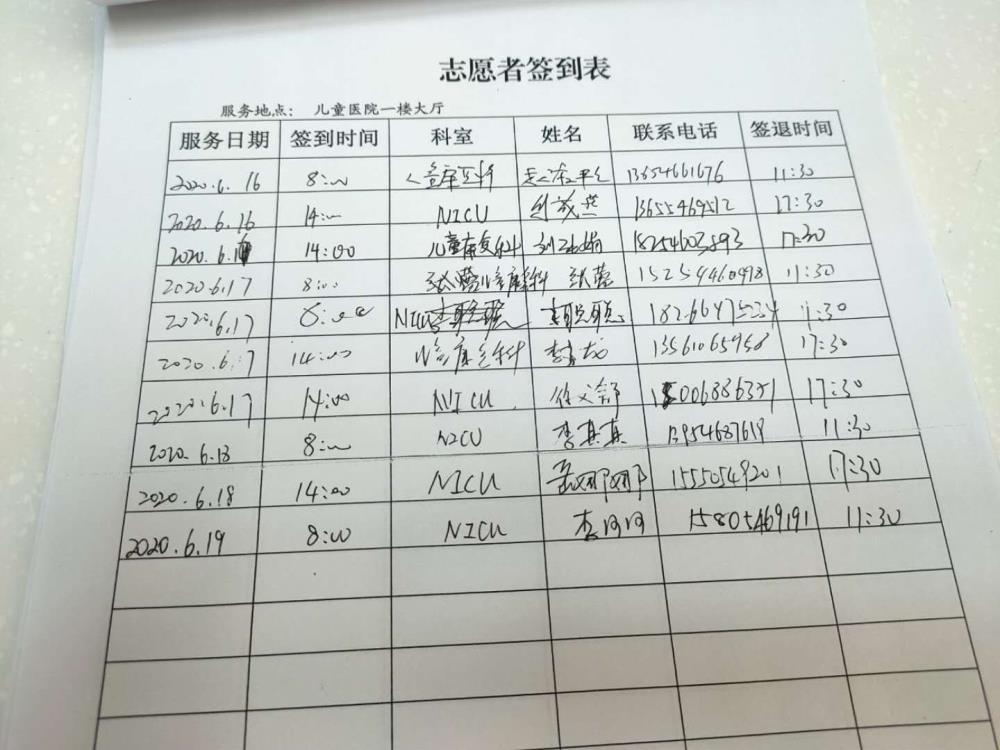 志愿者签到表
服务地点： 儿童医院一楼大厅
服务日期 签到时间 科室 姓名 联系电话 签退时间
2020.6.16 8:00 13654661676 11:30
2020.6.16 14:00 NICU 13655469512 17:30
2020.6.16 14:00 儿童康复科 18254603893 17:30
2020.6.17 8:00 儿童康复科 张蕾 15259460978 11:30
2020.6.17 8:00 NICU 李聪聪 18266475224 11:30
2020.6.17 14:00 儿童康复科 13561065958 17:30
2020.6.17 14:00 NICU 徐文郁 15006886351 17:30
2020.6.18 8:00 NICU 李真真 13954687619 11:30
2020.6.18 14:00 NICU 岳娜娜 15550549201 17:30
2020.6.19 8:00 NICU 李河河 15805469191 11:30